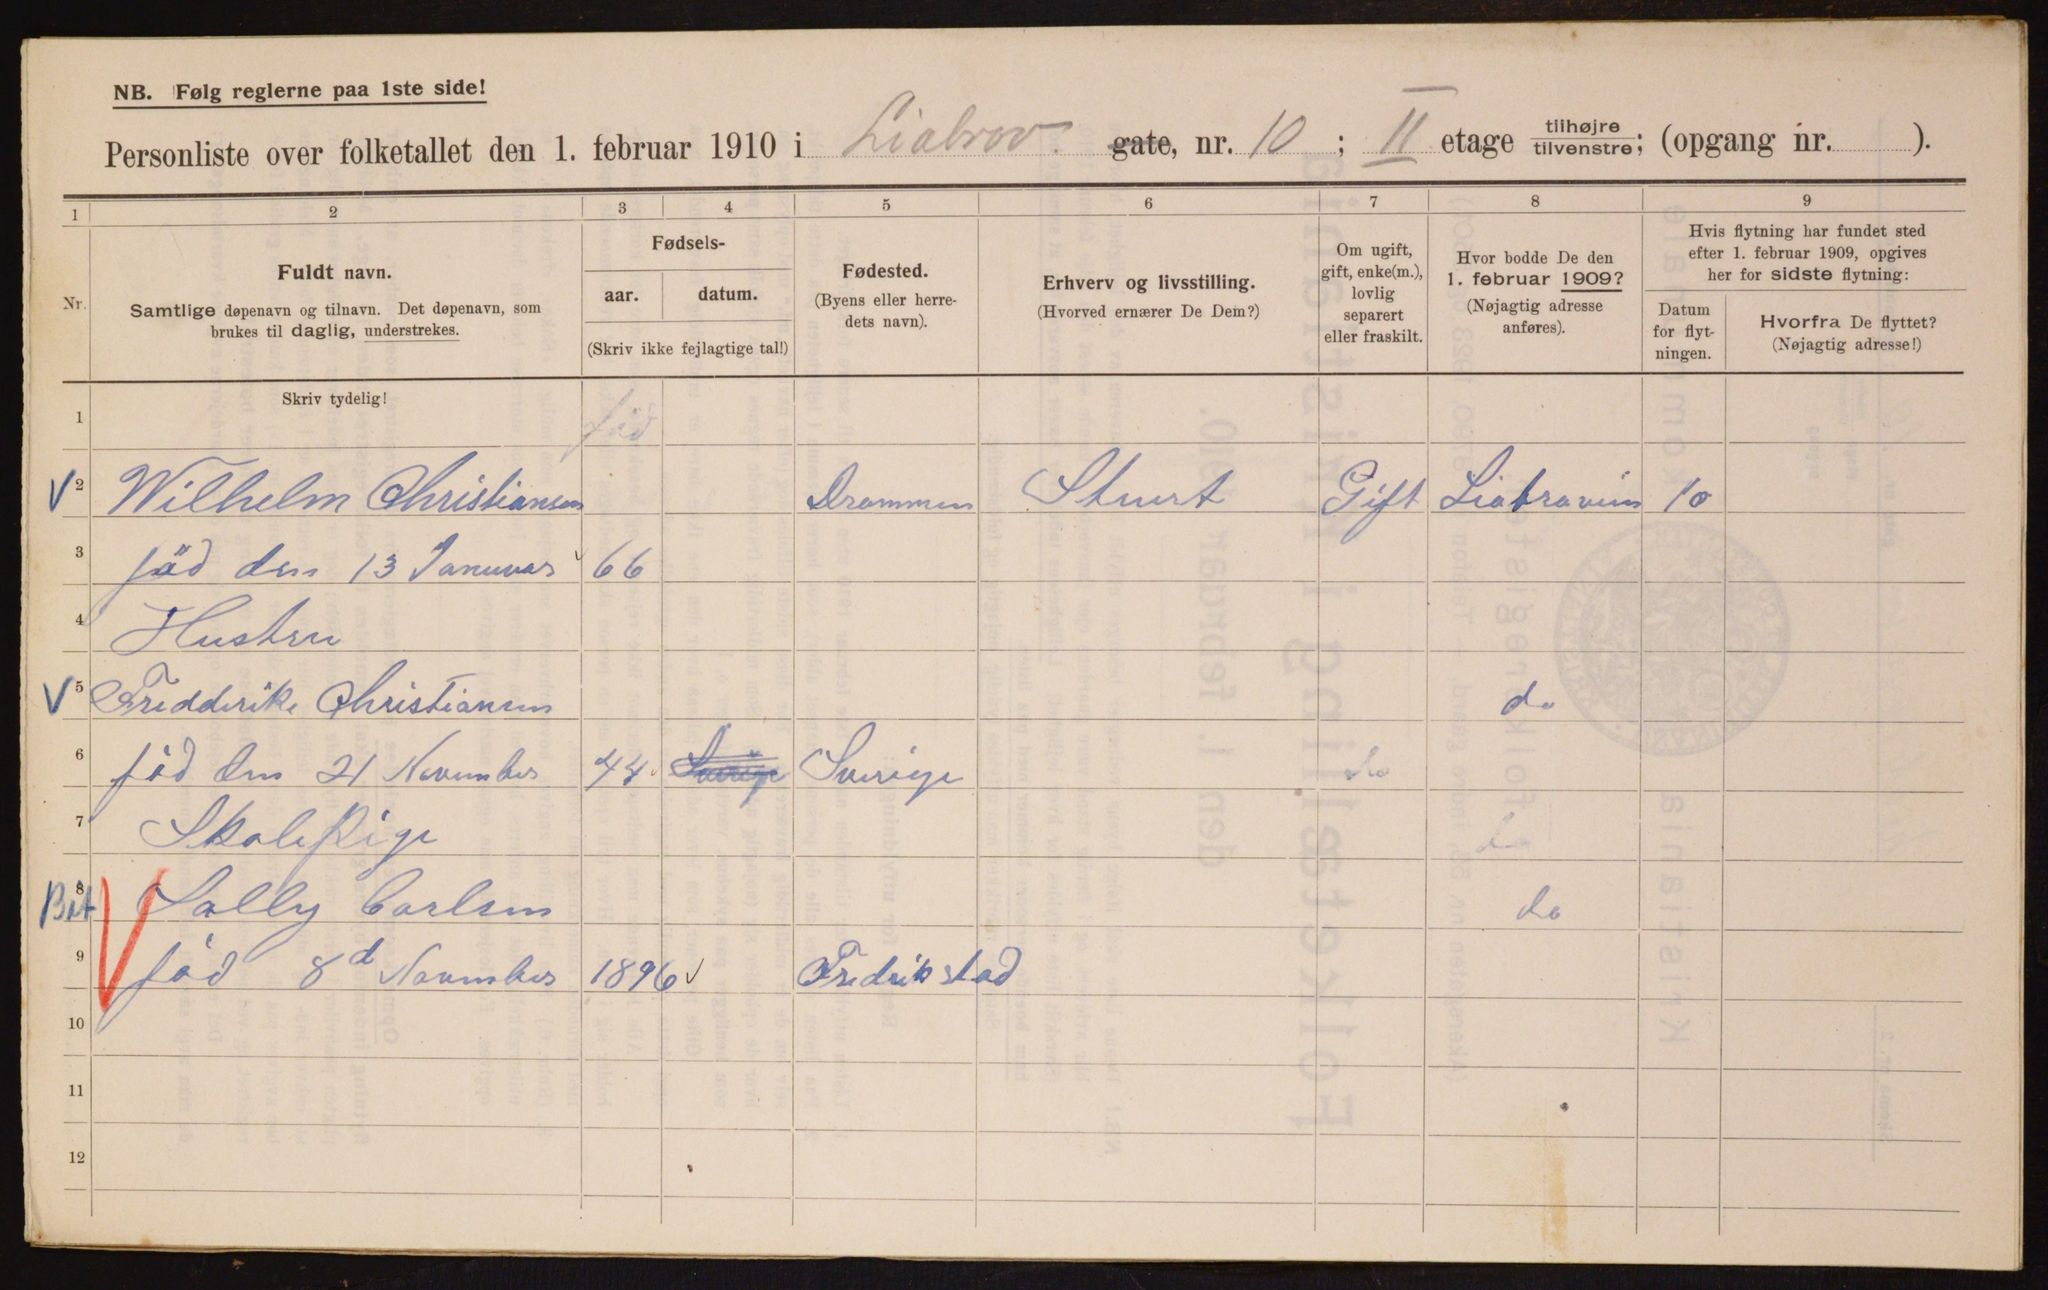 NB. Følg reglerne paa 1ste side!
Personliste over folketallet den 1. februar 1910 i Liabrov. gate, nr. 10 ; II etage tilhøjre tilvenstre; (opgang nr. ).
1 2 3 4 5 6 7 8 9
Nr.
Fuldt navn.
Samtlige døpenavn og tilnavn. Det døpenavn, som
brukes til daglig, understrekes.
Fødsels-
aar. datum.
(Skriv ikke fejlagtige tal!)
Fødested.
(Byens eller herre-
dets navn).
Erhverv og livsstilling.
(Hvorved ernærer De Dem?)
Om ugift,
gift, enke(m.),
lovlig
separert
eller fraskilt.
Hvor bodde De den
1. februar 1909?
(Nøjagtig adresse
anføres).
Hvis flytning har fundet sted
efter 1. februar 1909, opgives
her for sidste flytning:
Datum
for flyt-
ningen.
Hvorfra De flyttet?
(Nøjagtig adresse!)
Skriv tydelig!
1 fød
2 Wilhelm Christiansen Drammen Stuert Gift Liabravein 10
3 fød den 13 Januvar 66
4 Hustru
5 Fredderike Christiansen do
6 fød den 21 November 44 Sverige Sverige do
7 SkolePige do
8 Sally Carlsen do
9 fød 8d November 1896 Fredrikstad
10
11
12